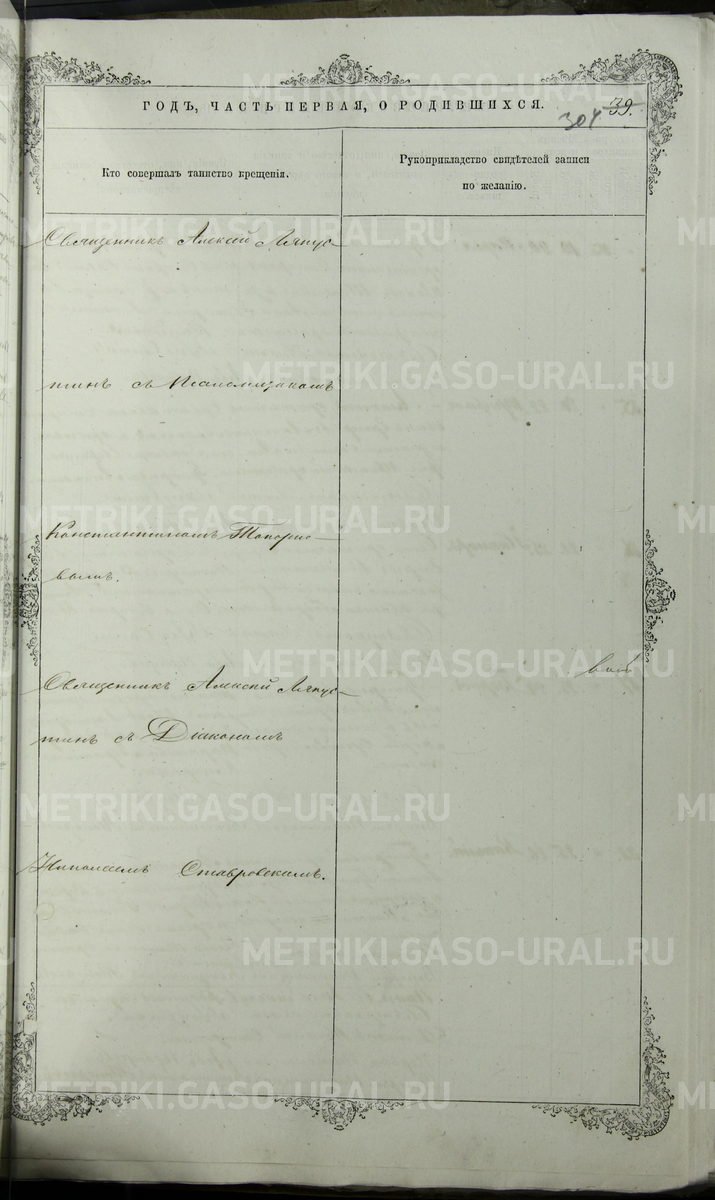 ГОДЪ, ЧАСТЬ ПЕРВАЯ, О РОДИВШИХСЯ.
304 39.
Кто совершалъ таинство крещенія.
Рукоприкладство свидѣтелей записи
по желанію.
Священникъ Алексѣй Ляпус-
тинъ съ Псаломщикомъ
Константиномъ Топорко-
вымъ.
Священникъ Алексѣй Ляпус-
тинъ съ Діакономъ
Николаемъ Ставровскимъ.
METRIKI.GASO-URAL.RU